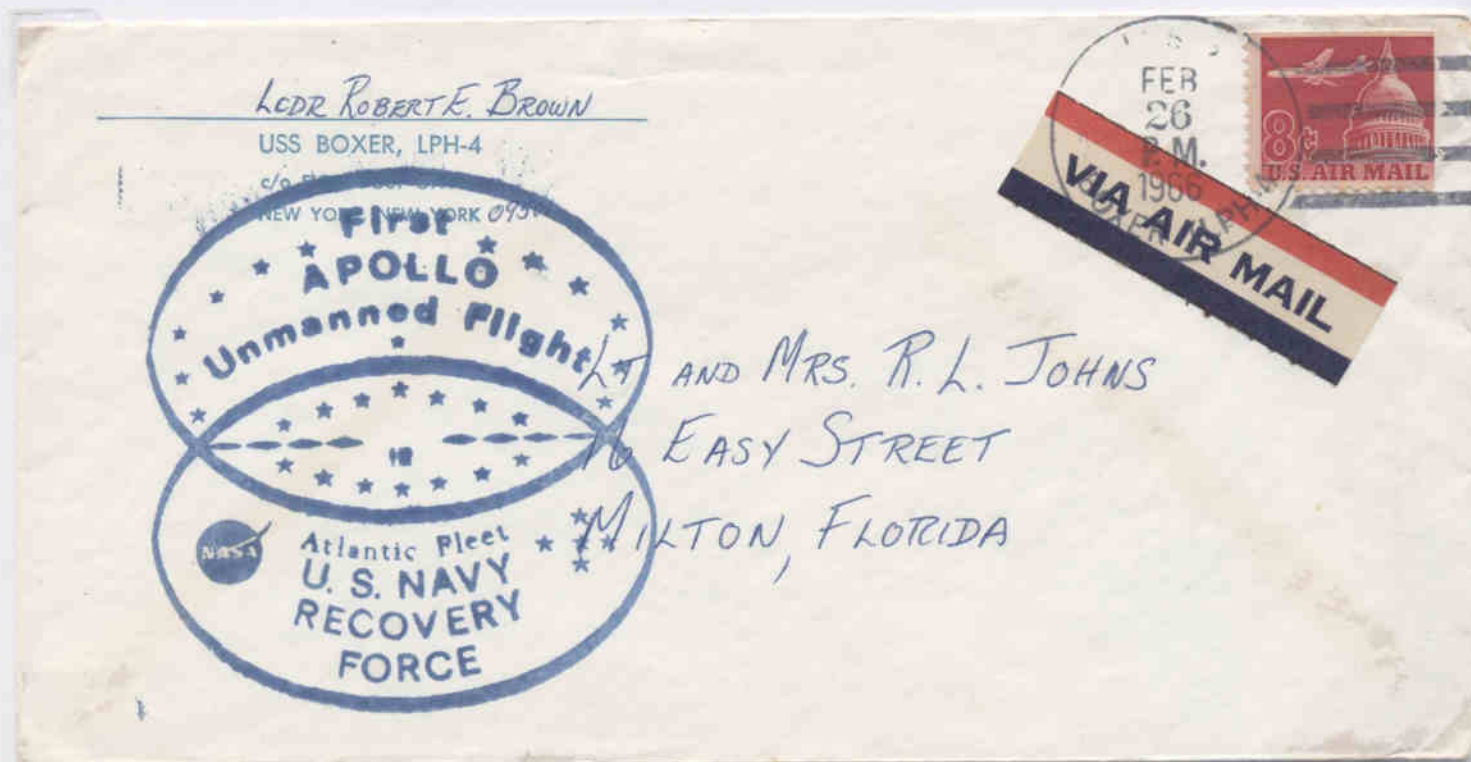 LCDR ROBERT E. BROWN
USS BOXER, LPH-4
c/o
NEW YORK, NEW YORK
First
APOLLO
Unmanned Flight
NASA
Atlantic Fleet
U. S. NAVY
RECOVERY
FORCE
FEB
26
P.M.
1966
8¢
U.S. AIR MAIL
VIA AIR MAIL
LT AND MRS. R. L. JOHNS
EASY STREET
MILTON, FLORIDA